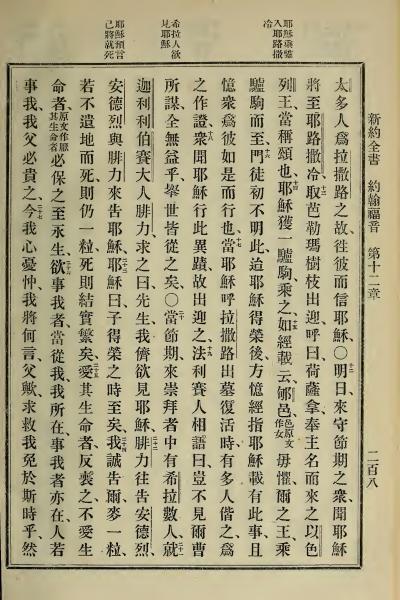 新約全書　約翰福音　第十二章　二百八
耶穌乘驢
入耶路撒
冷
希拉人欲
見耶穌
耶穌預言
己將就死
太多人爲拉撒路之故往彼而信耶穌〇十二明日來守節期之衆聞耶穌
將至耶路撒冷十三取芭勒瑪樹枝出迎呼曰荷薩拿奉主名而來之以色
列王當稱頌也十四耶穌獲一驢駒乘之如經載云十五郇邑邑原文作女毋懼爾之王乘
驢駒而至十六門徒初不明此迨耶穌得榮後方憶經指耶穌載有此事且
憶衆爲彼如是而行也十七當耶穌呼拉撒路出墓復活時有多人偕之爲
之作證十八衆聞耶穌行此異蹟故出迎之十九法利賽人相語曰豈不見爾曹
所謀全無益乎舉世皆從之矣〇二十當節期來崇拜者中有希拉數人二十一就
迦利利伯賽大人腓力求之曰先生我儕欲見耶穌二十二腓力往告安德烈
安德烈與腓力來告耶穌二十三耶穌曰子得榮之時至矣二十四我誠告爾麥一粒
若不遺地而死則仍一粒死則結實繁矣二十五愛其生命者反喪之不愛生
命者原文作厭其生命者必保之至永生二十六欲事我者當從我我所在事我者亦在人若
事我我父必貴之二十七今我心憂忡我將何言父歟求救我免於斯時乎然